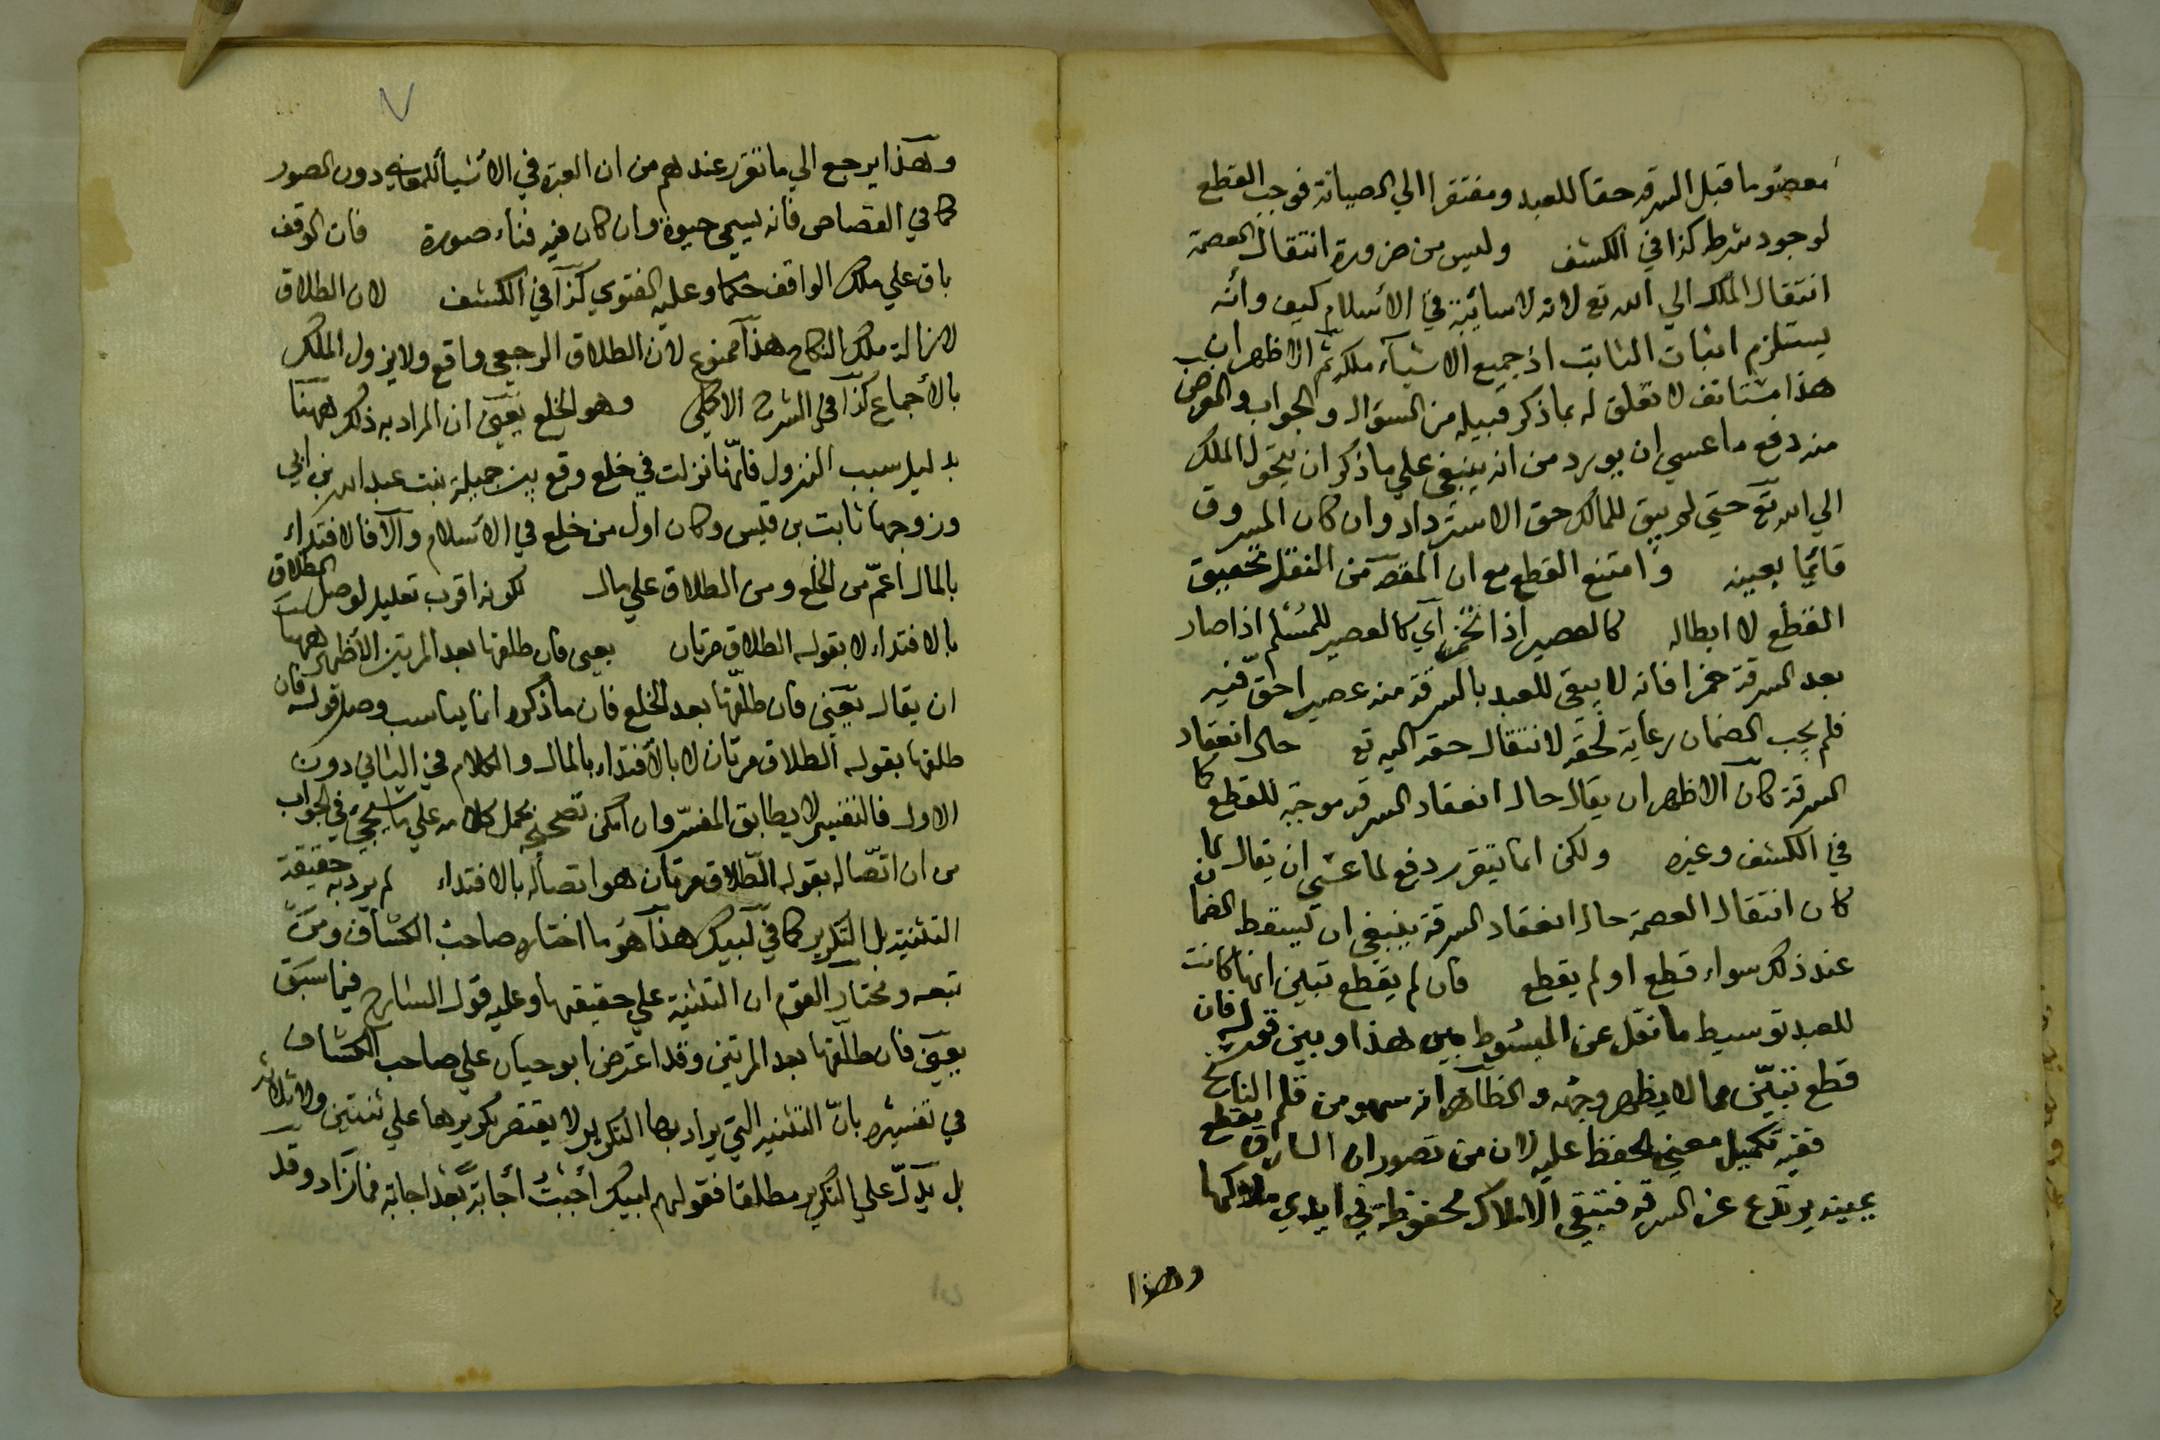 معصوما قبل السرقة حقا للعبد ومفتقرا الي الصيانة فوجب القطع
لوجود شرطه كذا في الكشف وليس من ضرورة انتقال العصمة
انتقال الملك الي الله تع لانه لا سائبة في الاسلام كيف وانه
يستلزم اثبات الثابت اذ جميع الاشياء ملكه ثم الاظهر ان
هذا مستانف لا تعلق له بما ذكر قبيله من السؤال والجواب والغرض
منه دفع ما عسي ان يورد من انه ينبغي علي ما ذكر ان يتحول الملك
الي الله تع حتي لم يبق للمالك حق الاسترداد وان كان المسروق
قائما بعينه وامتنع القطع مع ان المقصد من النقل تحقيق
القطع لا ابطاله كالعصير اذا تخمر اي كالعصير للمسلم اذا صار
بعد السرقة خمرا فانه لا يبقي للعبد بالسرقة منه عصيرا حق فيه
فلم يجب الضمان رعاية لحقه لانتقال حقه اليه تع حال انعقاد
السرقة كان الاظهر ان يقال حال انعقاد السرقة موجبة للقطع كما
في الكشف وغيره ولكن انما يتقرر دفع لما عسي ان يقال لما
كان انتقال العصمة حال انعقاد السرقة ينبغي ان يسقط الضمان
عند ذلك سواء قطع او لم يقطع فان لم يقطع تبين انها كانت
للعبد توسيط ما نقل عن المبسوط بين هذا وبين قوله فان
قطع تبين مما لا يظهر وجهه والظاهر انه سهو من قلم الناسخ
ففيه تكميل معني الحفظ عليه لان من تصور ان السارق يقطع
يمينه يرتدع عن السرقة فتبقي الاملاك محفوظة في ايدي ملاكها
وهذا
٧
وهذا يرجع الي ما تقرر عندهم من ان العبرة في الاشياء للمعاني دون الصور
كما في القصاص فانه يسمي حيوة وان كان فيه فناء صورة فان الوقف
باق علي ملك الواقف حكما وعليه الفتوي كذا في الكشف لان الطلاق
لازالة ملك النكاح هذا ممنوع لان الطلاق الرجعي واقع ولا يزول الملك
بالاجماع كذا في الشرح الاكملي وهو الخلع يعني ان المراد به ذلك ههنا
بدليل سبب النزول فانها نزلت في خلع وقع بين جميلة بنت عبد الله بن ابي
وزوجها ثابت بن قيس وكان اول من خلع في الاسلام والا فالافتداء
بالمال اعم من الخلع ومن الطلاق علي مال لكونه اقرب تعليل لوصل الطلاق
بالافتداء لا بقوله الطلاق مرتان يعني فان طلقها بعد المرتين الاظهر ههنا
ان يقال يعني فان طلقها بعد الخلع فان ما ذكره انما يناسب وصل قوله فان
طلقها بقوله الطلاق مرتان لا بالافتداء بالمال والكلام في الثاني دون
الاول فالتفسير لا يطابق المفسر وان امكن تصحيحه بحمل كلامه علي ما سيجيء في الجواب
من ان اتصاله بقوله الطلاق مرتان هو اتصاله بالافتداء لم يرد به حقيقة
التثنية بل التكرير كما في لبيك هذا هو ما اختاره صاحب الكشاف ومن
تبعه ومختار القوم ان التثنية علي حقيقتها وعليه قول الشارح فيما سبق
يعني فان طلقها بعد المرتين وقد اعترض ابو حيان علي صاحب الكشاف
في تفسيره بان التثنية التي يراد بها التكرير لا يقتصر تكريرها علي ثنتين ولا ثلاثة
بل يدل علي التكرير مطلقا فقولهم لبيك اجبت اجابة بعد اجابة فما زاد وقد